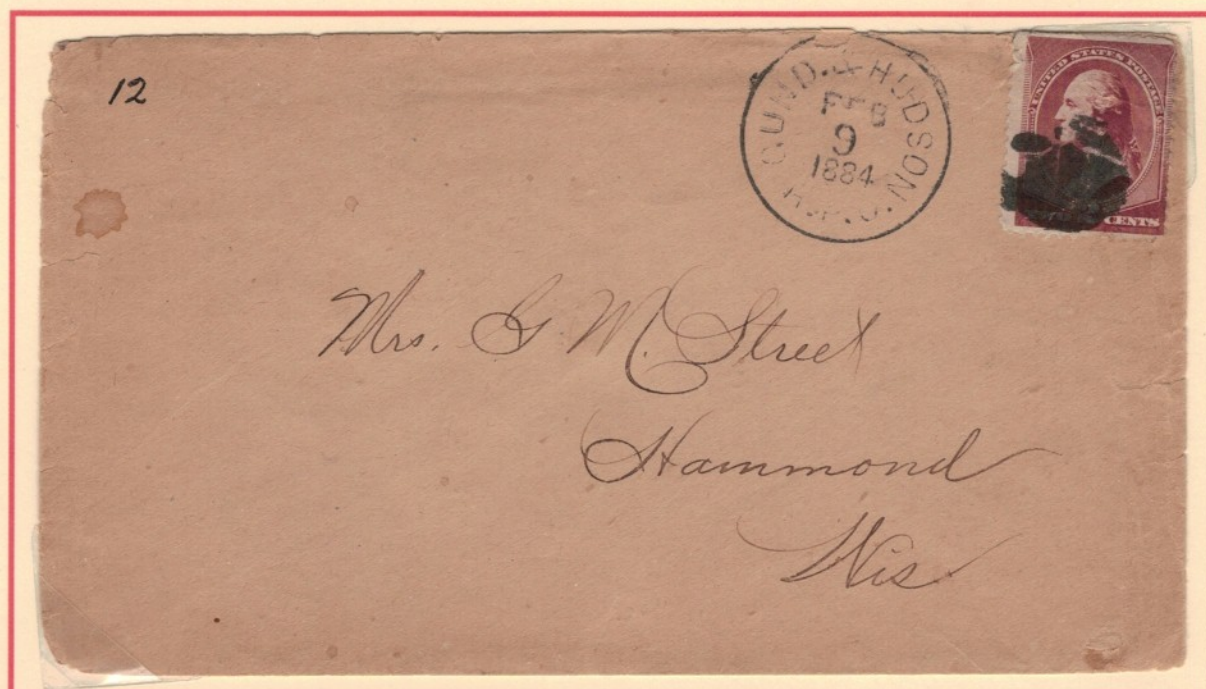 12
QUND. & HUDSON
FEB
9
1884
R.P.O.
UNITED STATES POSTAGE
CENTS
Mrs. G. M. Street
Hammond
Wis.